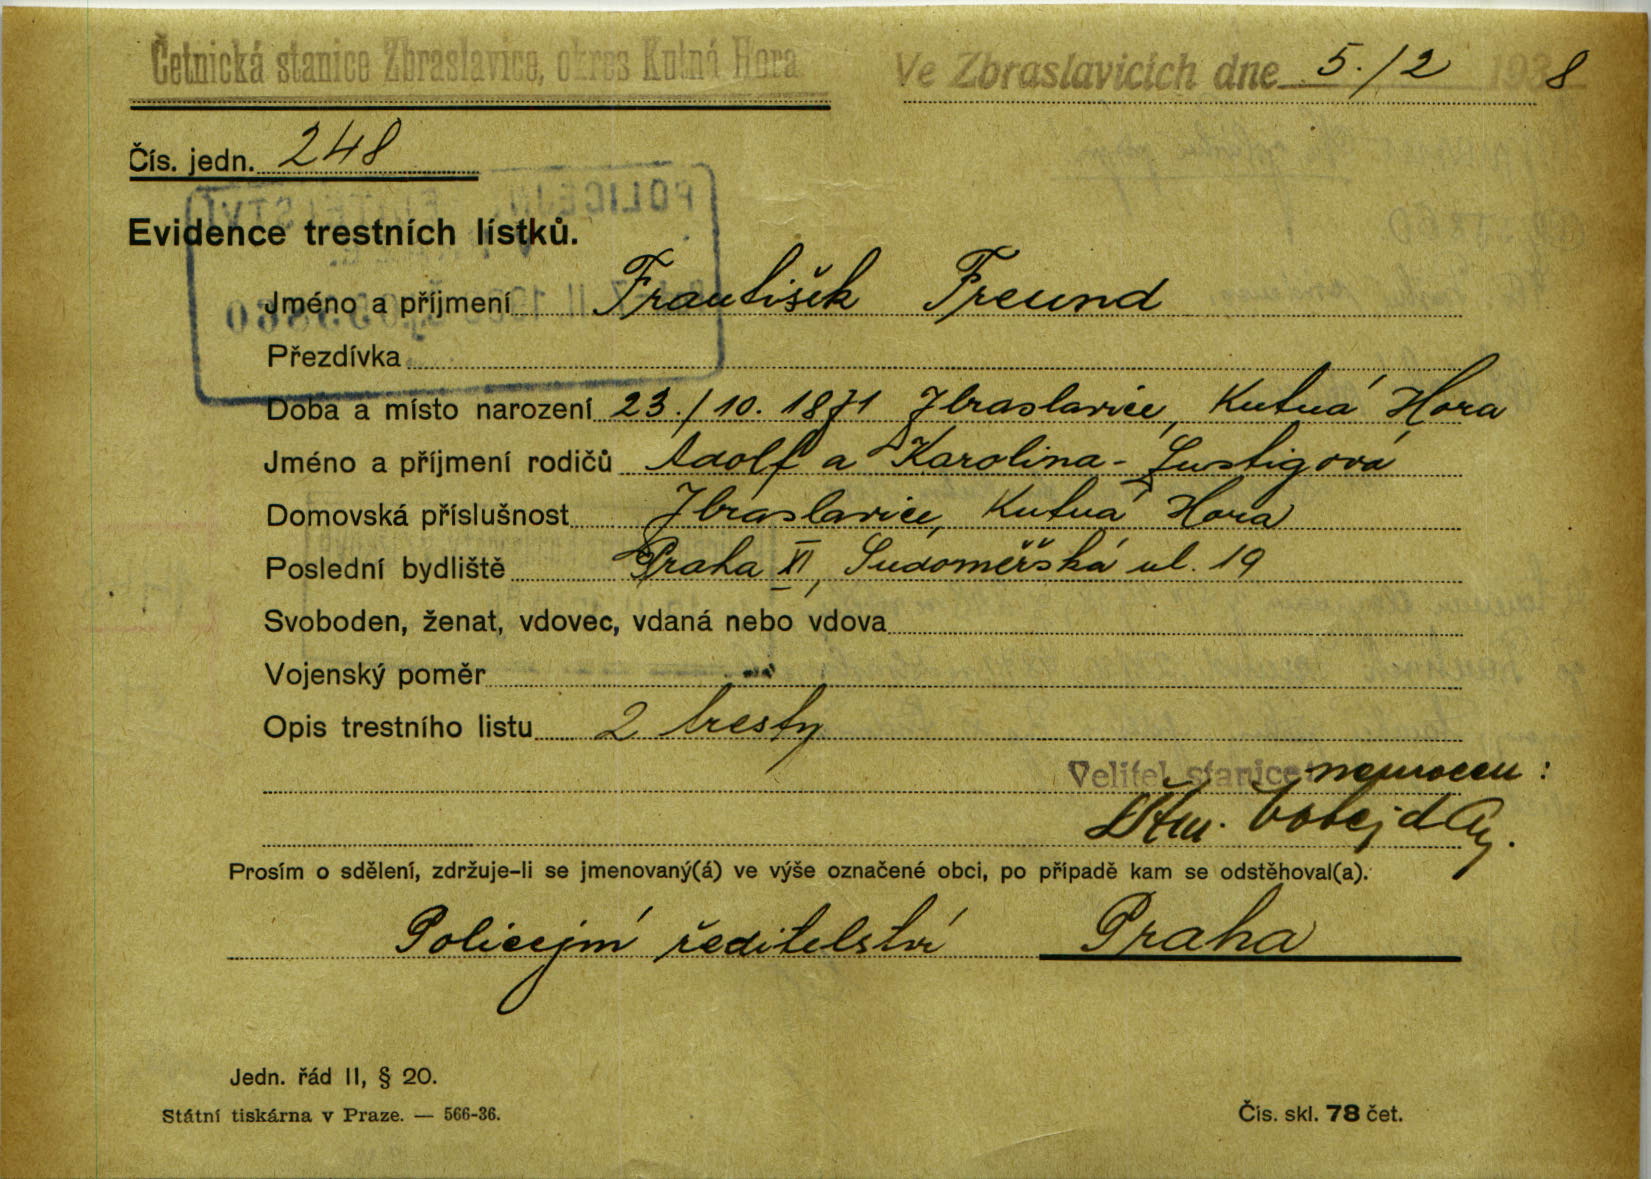 Četnická stanice Zbraslavice, okres Kutná Hora
Ve Zbraslavicích dne 5./2 1938
Čís. jedn. 248
Evidence trestních lístků.
Jméno a příjmení František Freund
Přezdívka
Doba a místo narození 23./10. 1871 Zbraslavice, Kutná Hora
Jméno a příjmení rodičů Adolf a Karolina - Lustigová
Domovská příslušnost Zbraslavice, Kutná Hora
Poslední bydliště Praha XI, Sudoměřská ul. 19
Svoboden, ženat, vdovec, vdaná nebo vdova
Vojenský poměr
Opis trestního listu 2 tresty
Velitel stanice: nemocen:
Prosím o sdělení, zdržuje-li se jmenovaný(á) ve výše označené obci, po případě kam se odstěhoval(a).
Policejní ředitelství Praha
Jedn. řád II, § 20.
Státní tiskárna v Praze. — 566-36.
Čis. skl. 78 čet.